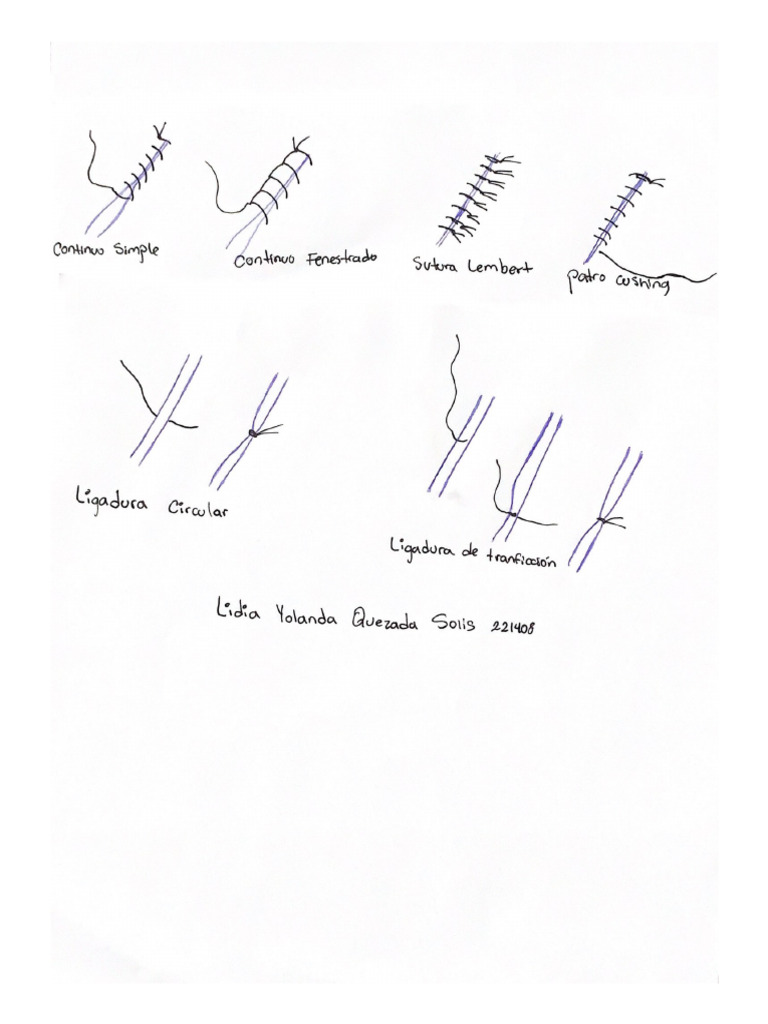 Continuo Simple
Continuo Fenestrado
Sutura Lembert
patro cushing
Ligadura Circular
Ligadura de tranficción
Lidia Yolanda Quezada Solis 221408